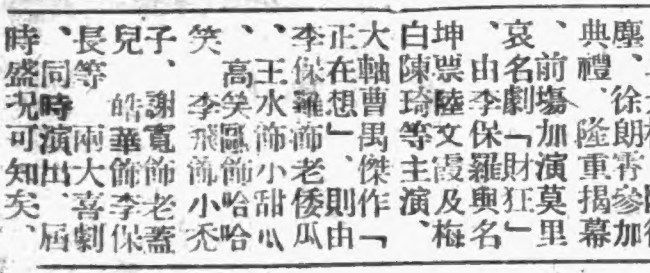 塵、徐朗霄參加
典禮、隆重揭幕
、前塲加演莫里
哀名劇「財狂」
、由李保羅與名
坤票陸文霞及梅
白陳琦等主演、
大軸曹禺傑作「
正在想」、則由
李保羅飾老倭瓜
、王水飾小甜心
、高笑鷗飾哈哈
笑、李飛飾小禿
子、謝寬飾老蓋
兒、皓華飾李保
長等、兩大喜劇
、同時演出、屆
時盛況可知矣、